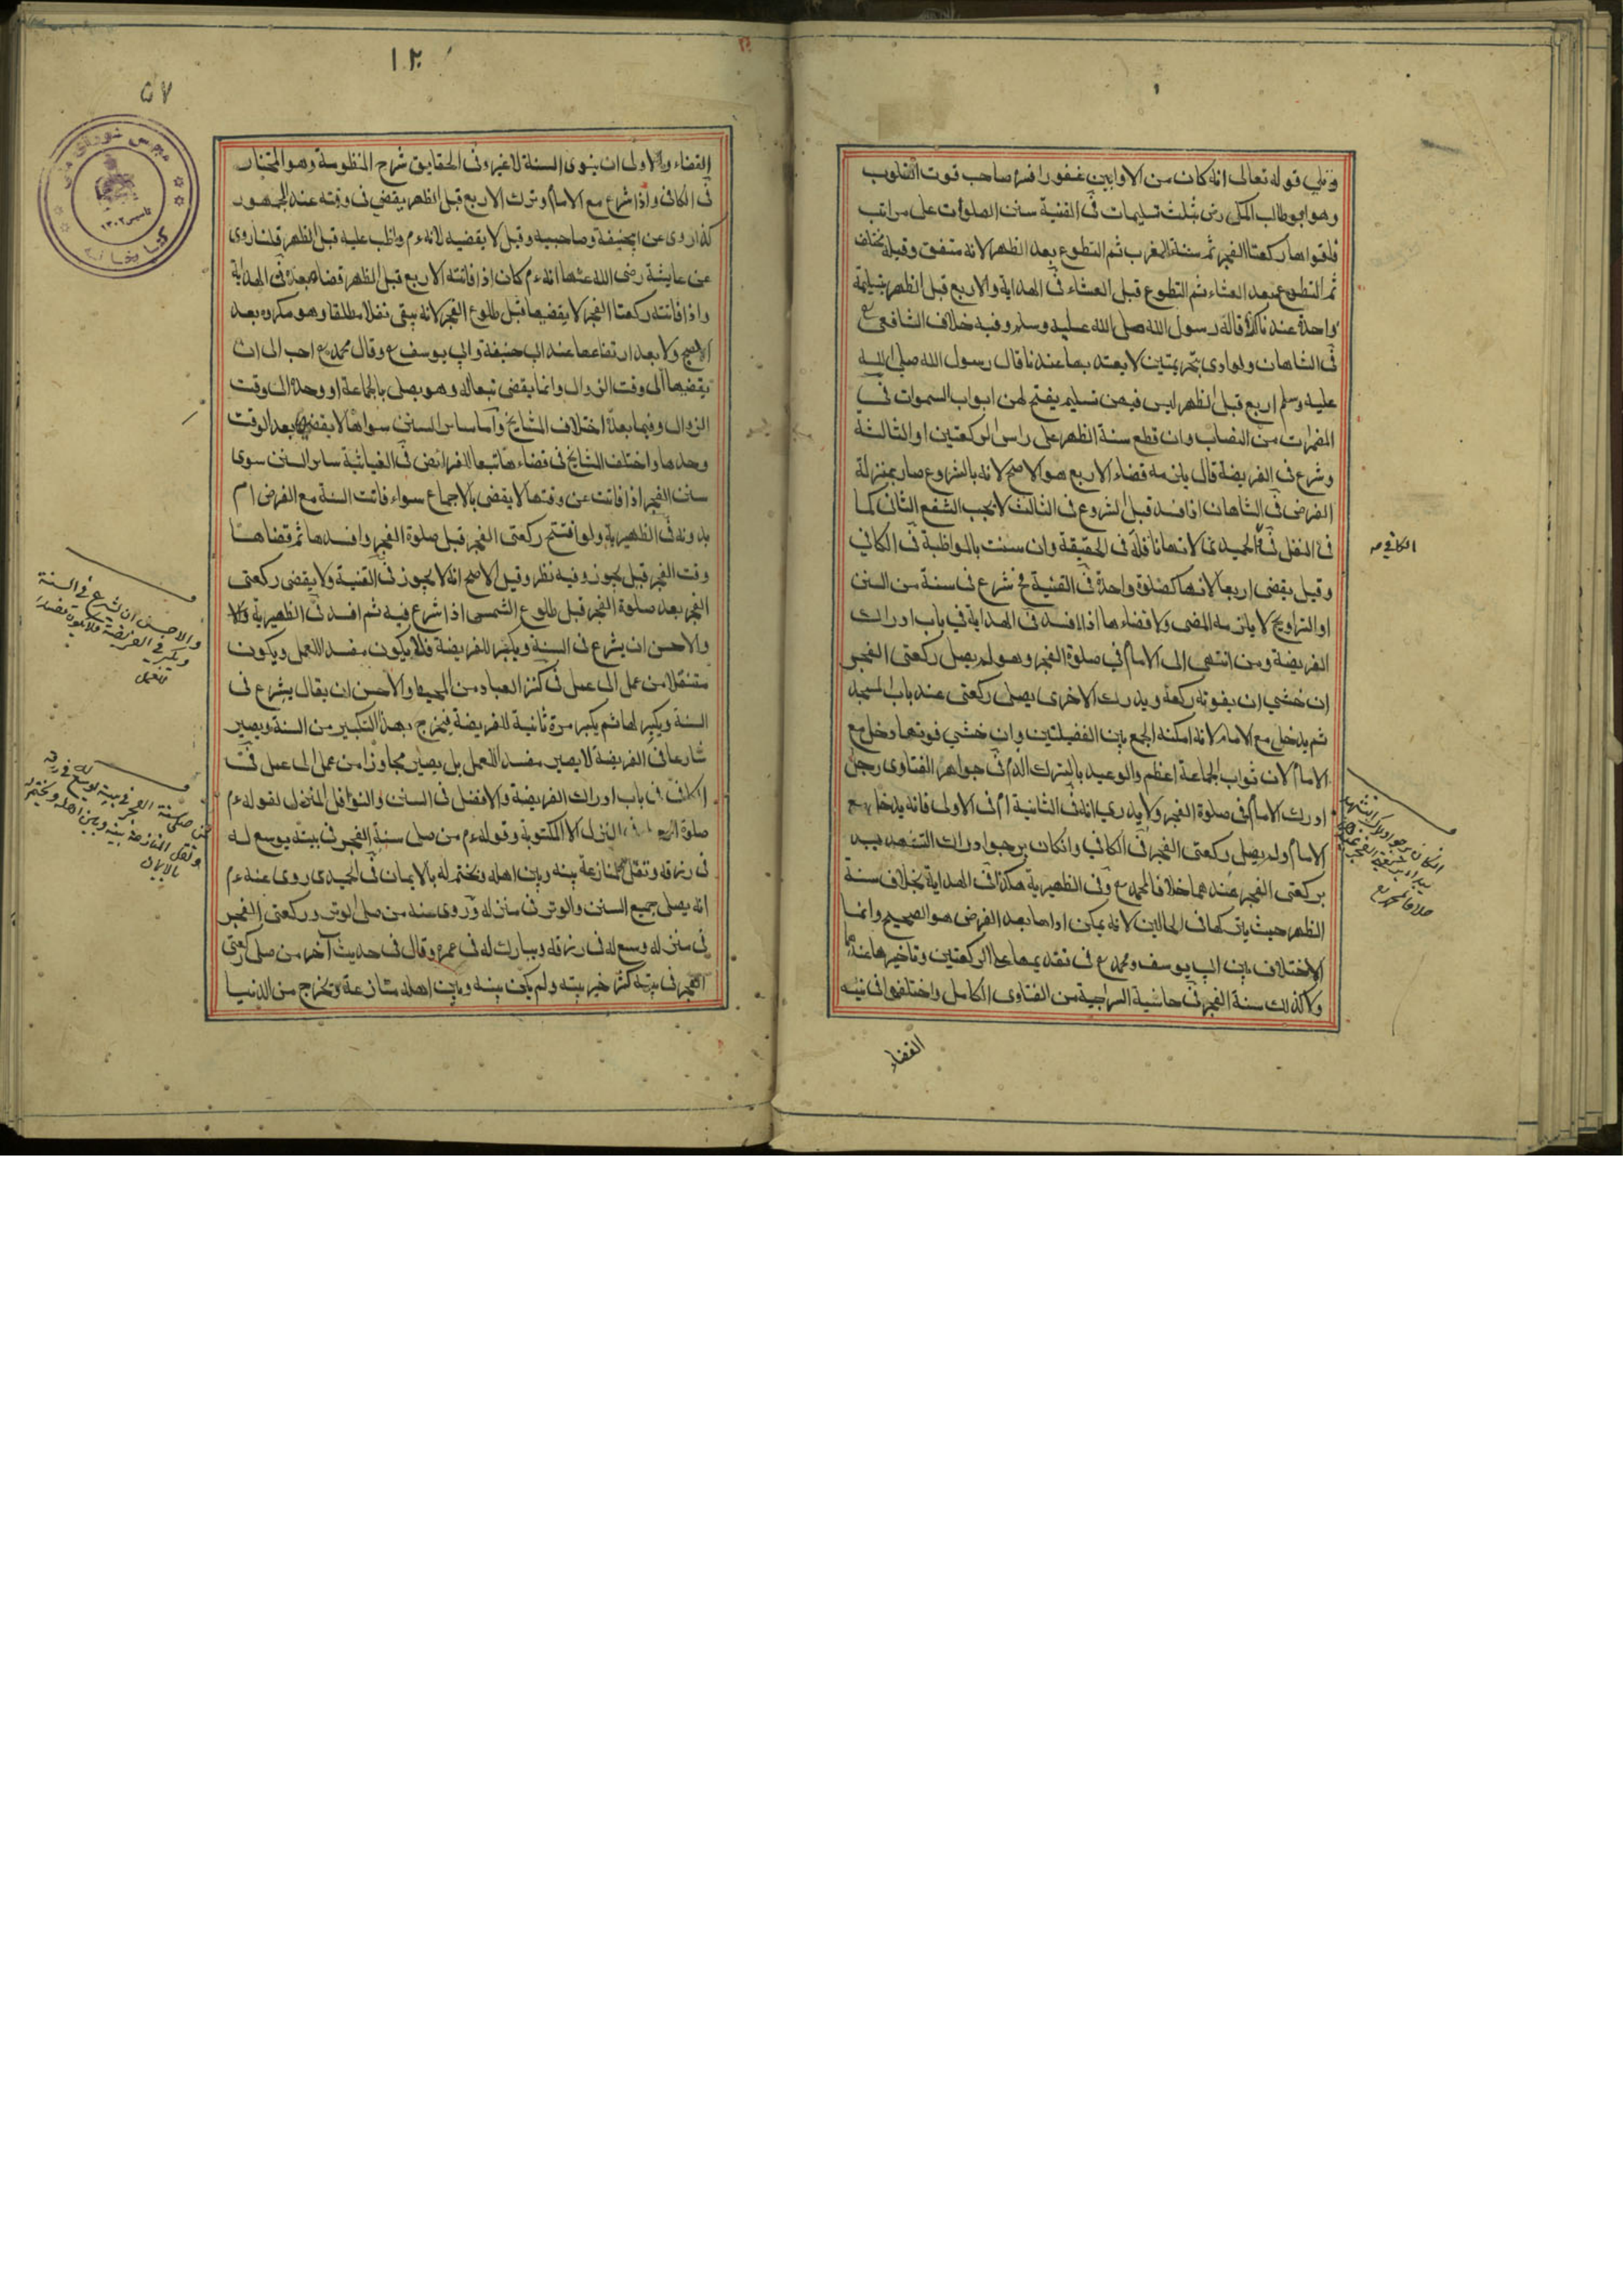 وتلى قوله تعالى انه كان من الاوابين غفورا فسره صاحب قوت القلوب
وهو ابو طالب المكى رض بثلث تسليمات فى القنية سنن الصلوات على مراتب
فاقواها ركعتا الفجر ثم سنة المغرب ثم التطوع بعد الظهر لانه متفق وقبله مختلف
ثم التطوع بعد العشاء ثم التطوع قبل العشاء فى الهداية والاربع قبل الظهر بتسليمة
واحدة عندنا كذا قاله رسول الله صلى الله عليه وسلم وفيه خلاف الشافعى رح
فى الشاهان ولو ادى بتحريمتين لا يعتد بها عندنا قال رسول الله صلى الله
عليه وسلم اربع قبل الظهر ليس فيهن تسليم يفتح لهن ابواب السموات فى
المضمرات من النصاب وان قطع سنة الظهر على راس الركعتين او الثالثة
وشرع فى الفريضة قال يلزمه قضاء الاربع هو الاصح لانه بالشروع صار بمنزلة
الفرض فى الشاهان اذا فسد قبل الشروع فى الثالث لا يجب الشفع الثانى كما
فى النفل فى الحميدى لانها نافلة فى الحقيقة وان سنت بالمواظبة فى الكافي
وقيل يقضى اربعا لانها كصلوة واحدة فى القنية شرع فى سنة من السنن
او التراويح لا يلزمه المضى ولا قضاءها اذا افسد فى الهداية في باب ادراك
الفريضة ومن انتهى الى الامام في صلوة الفجر وهو لم يصل ركعتى الفجر
ان خشي ان يفوته ركعة ويدرك الاخرى يصلى ركعتى عند باب المسجد
ثم يدخل مع الامام لانه امكنه الجمع بين الفضيلتين وان خشي فوتهما دخل مع
الامام لان ثواب الجماعة اعظم والوعيد بالترك الزم فى جواهر الفتاوى رجل
ادرك الامام فى صلوة الفجر ولا يدري انه فى الثانية ام فى الاولى فانه يدخل مع
الامام ولم يصل ركعتى الفجر فى الكافي وان كان يرجو ادراك التشهد يبدأ
بركعتى الفجر عندهما خلافا لمحمد رح وفى الظهيرية هكذا فى الهداية بخلاف سنة
الظهر حيث يتركها فى الحالين لانه يمكن اداءها بعد الفرض هو الصحيح وانما
الاختلاف بين ابى يوسف ومحمد رح فى تقديمها على الركعتين وتاخيرها عنهما
ولا كذلك سنة الفجر فى حاشية السراجية من الفتاوى الكامل واختلفوا فى نية
القضاء
الكافي
خلافا لمحمد رح
١٢٠
٥٧
القضاء والاولى ان ينوى السنة لا غير وفى الحقايق شرح المنظومة وهو المختار
فى الكافى واذا شرع مع الامام وترك الاربع قبل الظهر يقضي فى وقته عند الجمهور
كذا روى عن ابيحنيفة وصاحبيه وقيل لا يقضيه لانه ءم واظب عليه قبل الظهر قلنا روى
عن عايشة رضى الله عنها انه ءم كان اذا فاتته الاربع قبل الظهر قضاه بعده فى الهداية
واذا فاتته ركعتا الفجر لا يقضيها قبل طلوع الفجر لانه يبقى نفلا مطلقا وهو مكروه بعد
الصبح ولا بعد ارتفاعها عند ابى حنيفة وابي يوسف رح وقال محمد رح احب الى ان
يقضيها الى وقت الزوال وانما يقضى تبعا له وهو يصلى بالجماعة او وحده الى وقت
الزوال وفيما بعده اختلاف المشايخ واما ساير السنن سواها لا يقضى بعد الوقت
وحدها واختلف المشايخ فى قضاءها تبعا للفرائض فى الغياثية ساير السنن سوى
سنن الفجر اذا فاتت عن وقتها لا يقضى بالاجماع سواء فاتت السنة مع الفرض ام
بدونه فى الظهيرية ولو افتتح ركعتى الفجر قبل صلوة الفجر وافسدها ثم قضاها
وقت الفجر قيل يجوز وفيه نظر وقيل الاصح انه لا يجوز فى القنية ولا يقضى ركعتى
الفجر بعد صلوة الفجر قبل طلوع الشمس اذا شرع فيه ثم افسد فى الظهيرية
والاحسن ان يشرع فى السنة ويكبر للفريضة فلا يكون مفسدا للعمل ويكون
منتقلا من عمل الى عمل فى كنز العباد من المحيط والاحسن ان يقال يشرع فى
السنة ويكبر لها ثم يكبر مرة ثانية للفريضة فيخرج بهذا التكبير من السنة ويصير
شارعا فى الفريضة لا يصير مفسدا للعمل بل يصير مجاوزا من عمل الى عمل فى
الكافى فى باب ادراك الفريضة والافضل فى السنن والنوافل المنزل لقوله ءم
صلوة المنزل الا المكتوبة وقوله ءم من صلى سنة الفجر فى بيته يوسع له
فى رزقه وتقل المنازعة بينه وبين اهله ويختم له بالايمان فى الحميدى روى عنه ءم
انه يصلى جميع السنن والوتر فى منزله وروى عنه من صلى الوتر وركعتى الفجر
فى منزله وسع له فى رزقه ويبارك له فى عمره وقال فى حديث آخر من صلى ركعتى
الفجر فى بيته كثر خير بيته ولم يكن بينه وبين اهله منازعة ويخرج من الدنيا
والاحسن ان يشرع فى السنة
ويكبر فى الفريضة فلا يكون مفسدا
للعمل
من صلى سنة الفجر فى بيته يوسع له فى رزقه
وتقل المنازعة بينه وبين اهله ويختم له
بالايمان
كتابخانه